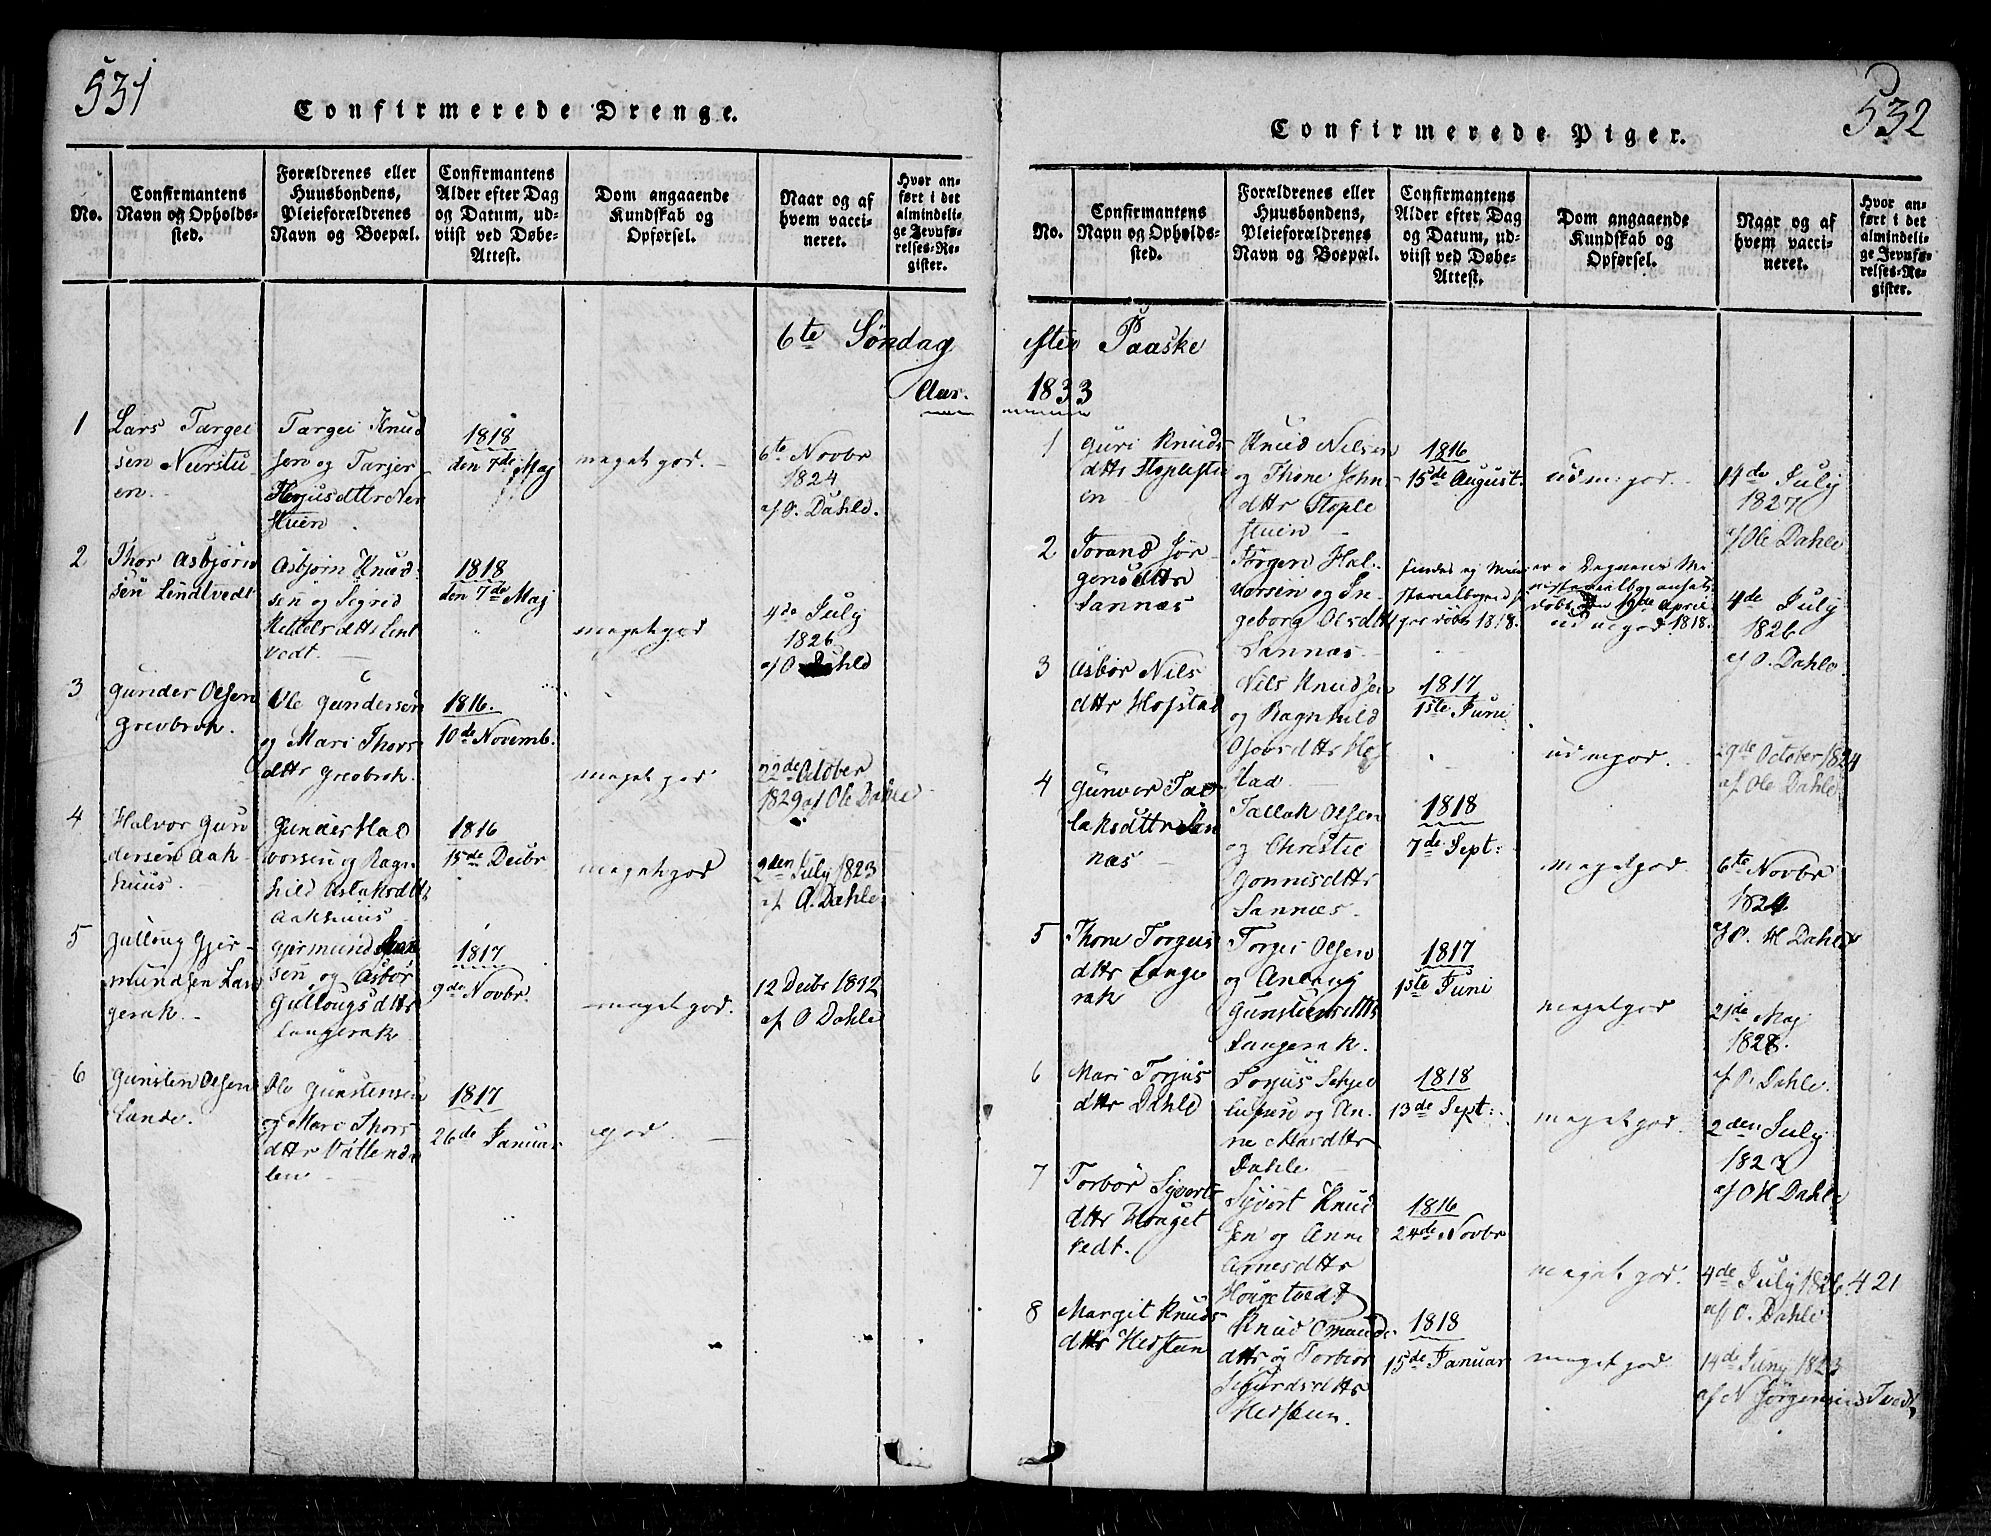 531
Confirmerede Drenge.
No.
Confirmantens
Navn og Opholds-
sted.
Forældrenes eller
Huusbondens,
Pleieforældrenes
Navn og Boepæl.
Confirmantens
Alder efter Dag
og Datum, ud-
viist ved Døbe-
Attest.
Dom angaaende
Kundskab og
Opførsel.
Naar og af
hvem vacci-
neret.
Hvor an-
ført i det
almindeli-
ge Jevnfø-
relses-Re-
gister.
6te Søndag
Aar.
1
Lars Targei
sen Nerstu-
en.
Targei Knud
sen og Tarjer
Nerstuen
1818
den 7de Maj
meget god.
6te Novbr
1824
af O. Dahle.
2
Thor Asbjørn
sen Lindtvedt
Asbjørn Knud-
sen og Sigrid
Kettelsdttr Lint
vedt.
1818
den 7de Maj
meget god
4de July
1826
af O Dahle
3
Gunder Olsen
Greobrok.
Ole Gundersen
og Mari Thors
dttr Greobrok.
1816.
10de Novemb.
meget god
22de October
1829 af Ole Dahle
4
Halvor Gun
dersen Aak
huus.
Gunder Hal
vorsen og Ragn
hild Aslaksdttr
Aakhuus
1816
15de Decbr
meget god
2den July 1823
af O. Dahle
5
Gulloug Gjer-
mundsen Lan
gerak.
Gjermund
sen og Asbør
Gullougsdttr
Langerak
1817
9de Novbr.
meget god.
12 Decbr 1832
af O Dahle
6
Gunsten Olsen
Lande.
Ole Gunstensen
og Mari Thors
dttr Vattenda
len
1817
26de Januar
god.
532
Confirmerede Piger.
No.
Confirmantens
Navn og Opholds-
sted.
Forældrenes eller
Huusbondens,
Pleieforældrenes
Navn og Boepæl.
Confirmantens
Alder efter Dag
og Datum, ud-
viist ved Døbe-
Attest.
Dom angaaende
Kundskab og
Opførsel.
Naar og af
hvem vacci-
neret.
Hvor an-
ført i det
almindeli-
ge Jevnfø-
relses-Re-
gister.
efter Paaske
1833
1
Guri Knuds
dttr Stoplestu
en
Knud Nilsen
og Thone John
dttr Stople
stuen
1816
15de August.
ud m: god.
14de July
1827
af Ole Dahle
2
Torand Jør-
gensdttr
Sannæs
Jørgen Hal-
vorsen og In
geborg Olsdttr
Sannæs
findes ej
1818.
19de April
1818.
ud m god
4de July
1826
af O. Dahle
3
Asbør Nils
dttr Hofstad
Nils Knudsen
og Ragnhild
Hof
stad
1817
1ste Juni
ud m god.
29de October 1824
af Ole Dahle
4
Gunvor Tal
laksdttr San
næs
Tallak Olsen
og Christie
Gonnisdttr
Sannæs
1818
7de Sept:
meget god.
6te Novbr
1824
af O. H Dahle
5
Thone Torgeis
dttr Lange
rak
Torgei Olsen
og Anlaug
Gunstensdttr
Langerak.
1817
1ste Juni
meget god
21de Maj
1828.
af O. Dahle.
6
Mari Torjus
dttr Dahle
Torjus
og An-
ne dttr
Dahle
1818
13de Sept:
meget god.
2den July
1823
af O H Dahle
7
Torbør Syvert
dttr Houget
vedt.
Syvert Knud
sen og Anne
Arnesdttr
Hougetvedt
1816
24de Novbr
meget god.
4de July 1826
af O. Dahle
421
8
Margit Knuds
dttr Hedsteen
Knud Omund
dttr og Torbiør
Sigurdsdttr
Hedsteen.
1818
15de Januar
meget god
14de Juny 1823
af N Jørgensen Tvedt,